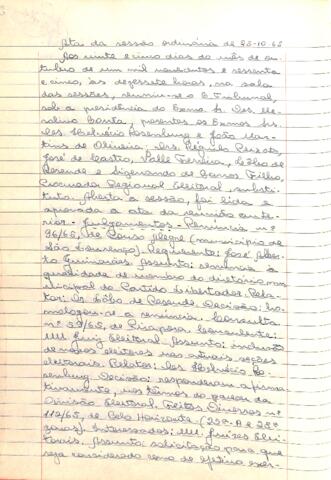 Ata da sessão ordinária de 25-10-65
Aos vinte e cinco dias do mês de ou-
tubro de um mil novecentos e sessenta
e cinco, às dezessete horas, na sala
das sessões, reuniu-se o E. Tribunal,
sob a presidência do Exmo. Sr. Des.
Costa, presentes os Exmos. Srs.
Des. Helvécio Rosenburg e João Mar-
tins de Oliveira; Drs. Régulo Peixoto,
José de Castro, Valle Ferreira, Lôbo de
Resende e de Barros Filho,
Procurador Regional Eleitoral substi-
tuto. Aberta a sessão, foi lida e
aprovada a ata da reunião ante-
rior. Julgamentos - Renúncia n.º
96/65, de Pouso Alegre (município de
São Lourenço). Requerente: José
Guimarães. Assunto: renúncia à
qualidade de membro do diretório mu-
nicipal do Partido Libertador. Rela-
tor: Dr. Lôbo de Resende. Decisão: ho-
mologou-se a renúncia. Consulta
n.º 39/65, de Piraposa. Consulente:
MM. Juiz Eleitoral. Assunto: inclusão
de novos eleitores nas atuais seções
eleitorais. Relator: Des. Helvécio Ro-
senburg. Decisão: responderam afirma-
tivamente, nos têrmos do parecer da
Omissão Eleitoral. Feitos Diversos n.º
112/65, de Belo Horizonte (22ª e 25ª
zonas). Interessados: MM. Juízes Elei-
torais. Assunto: solicitação para que
seja considerado como de efetivo exer-